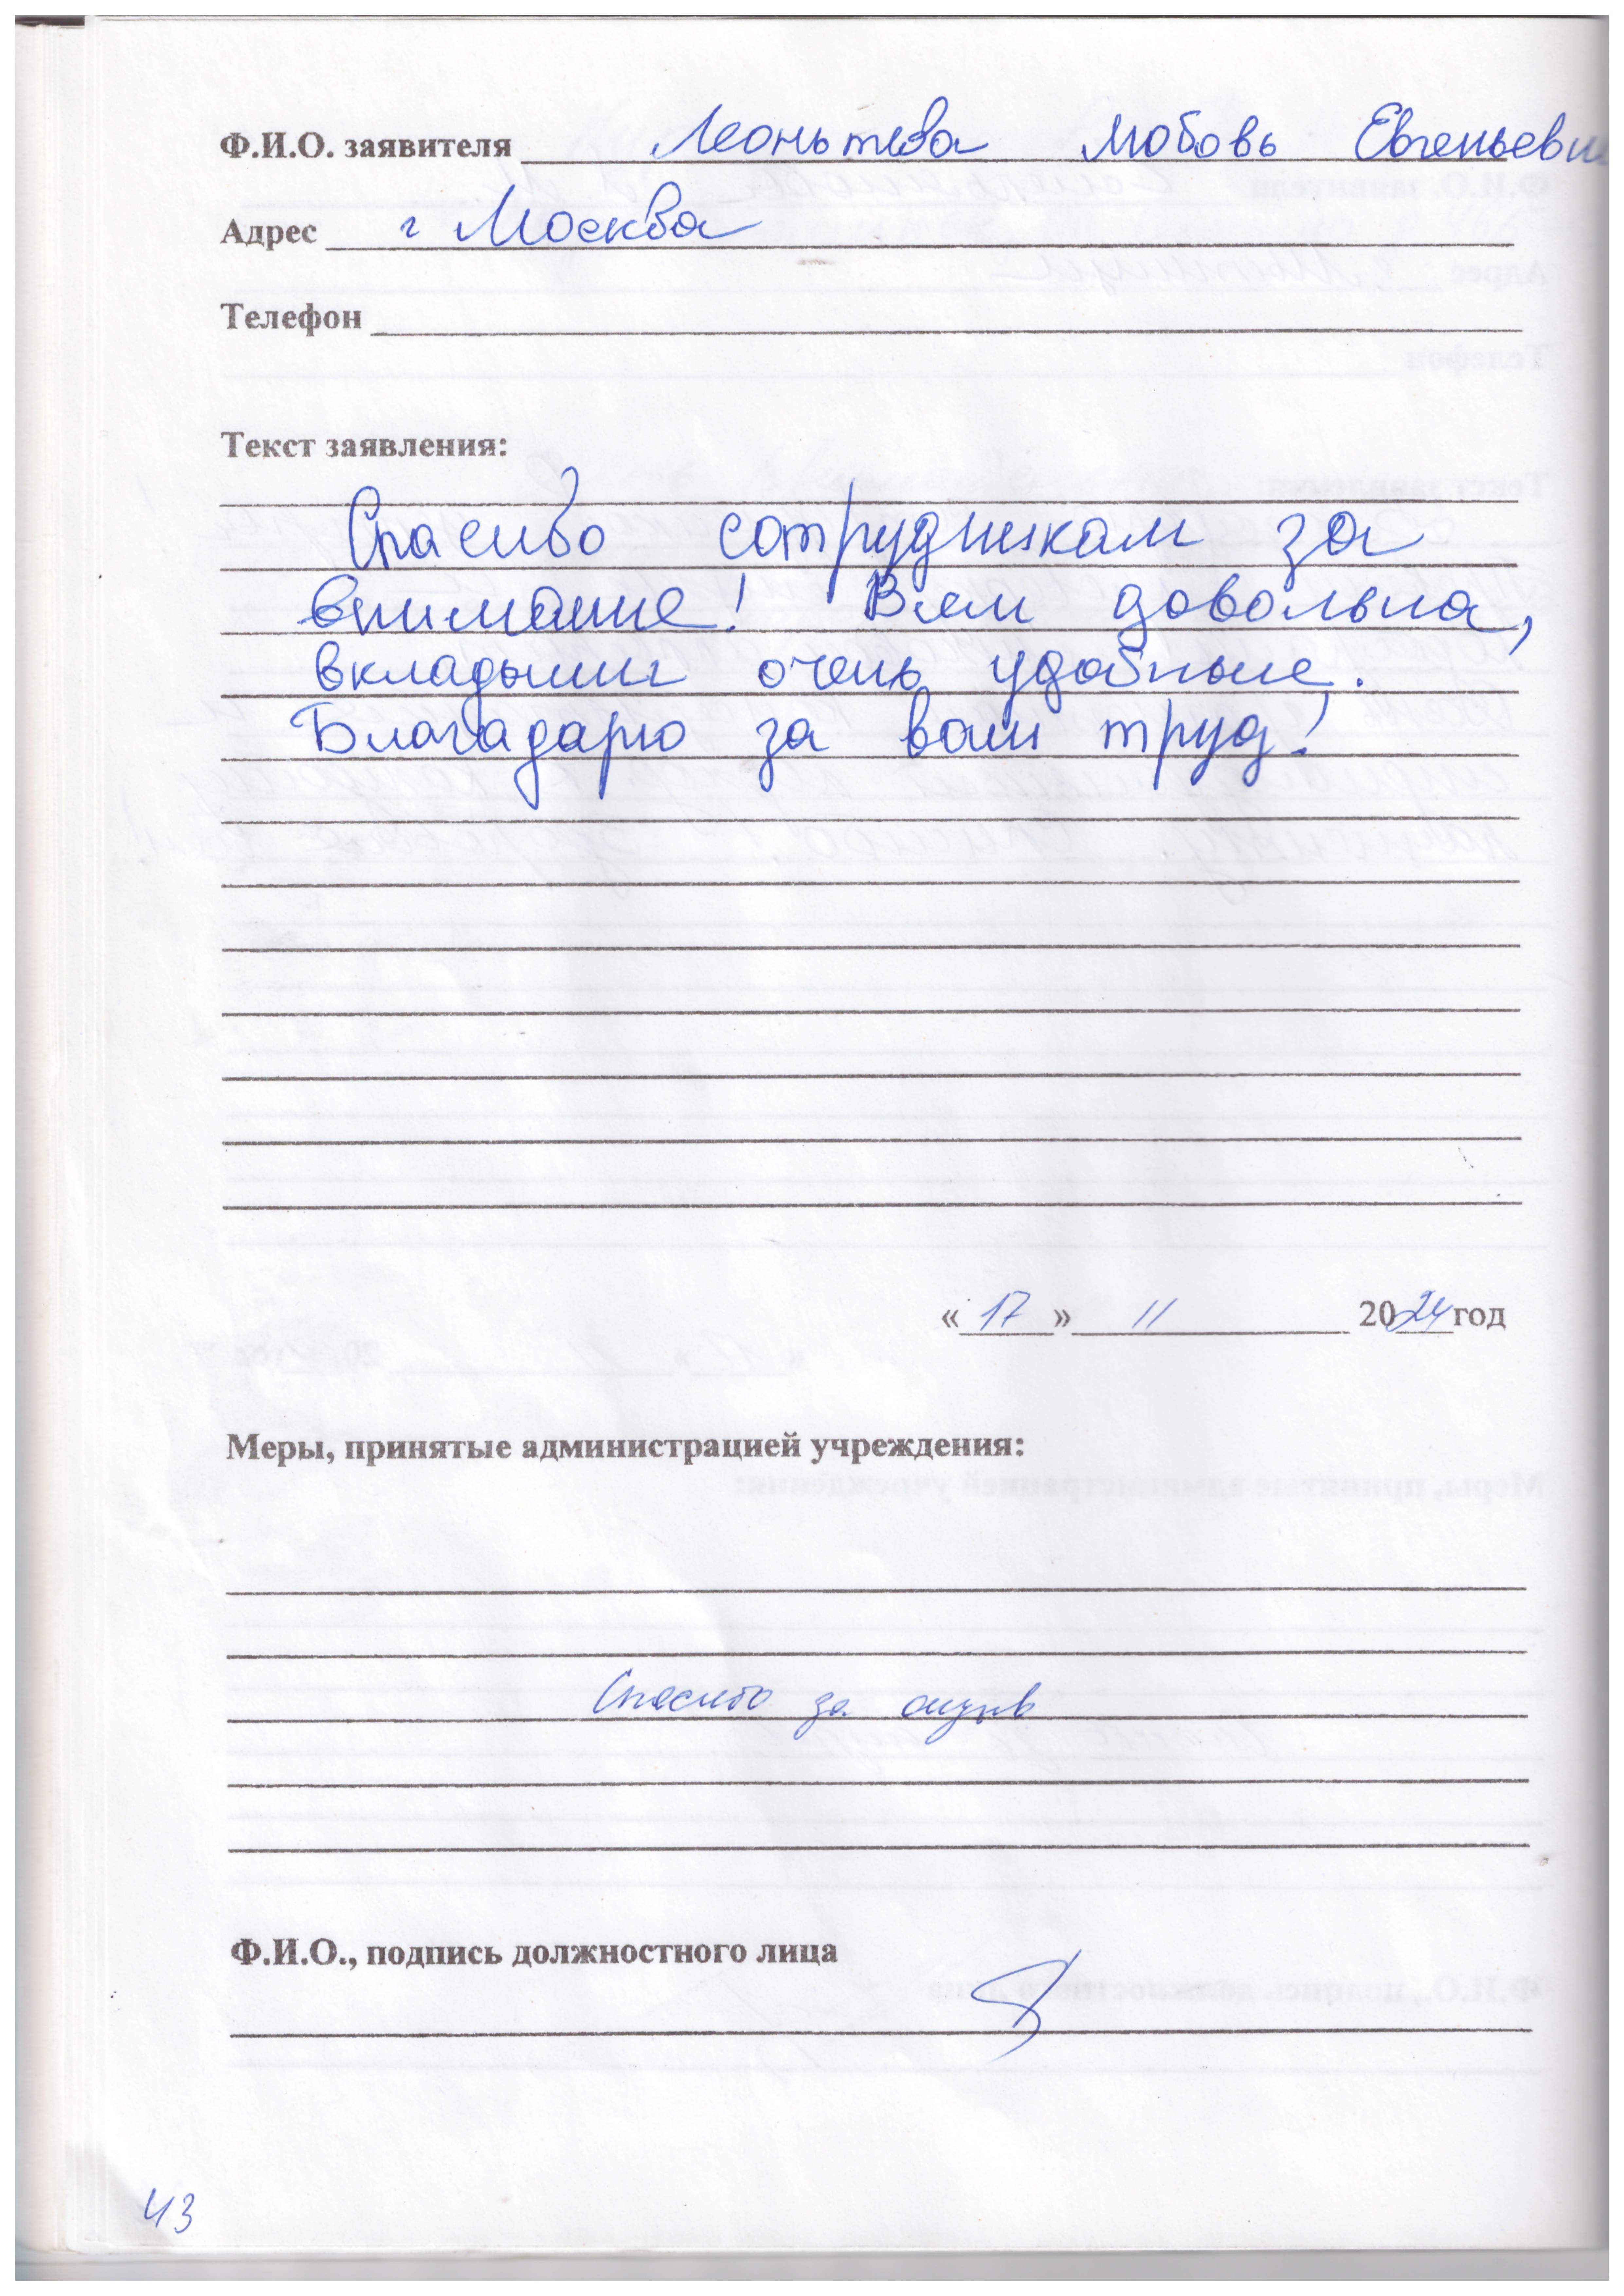 Ф.И.О. заявителя Леоньтева Любовь Евгеньевн
Адрес г Москва
Телефон
Текст заявления:
Спасибо сотрудникам за
внимание! Всем довольна,
вкладыши очень удобные.
Благадарю за ваш труд!
«17» 11 2024 год
Меры, принятые администрацией учреждения:
Спасибо за отзыв
Ф.И.О., подпись должностного лица
43